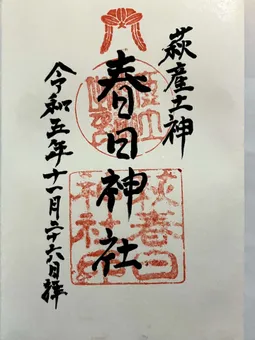 萩産土神
春日神社
令和五年十一月二十六日拝
萩春日
神社印